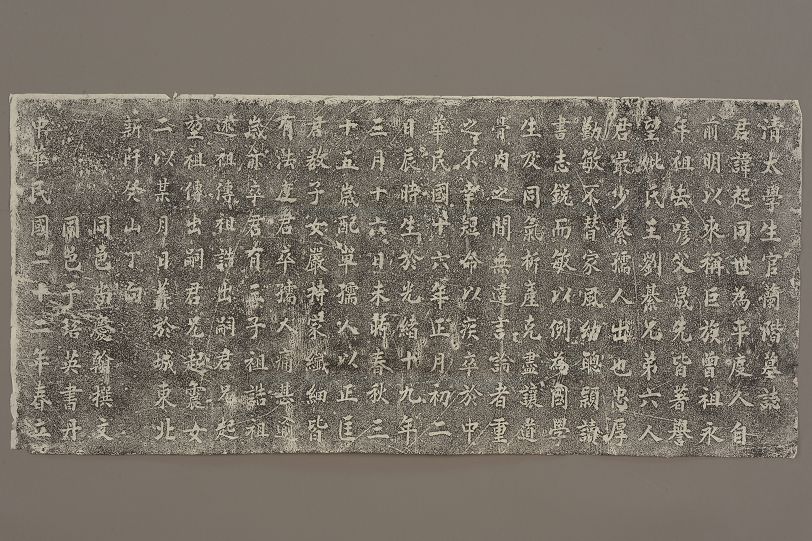 清太學生官蘭階墓誌
君諱起同世為平度人自
前明以來稱巨族曾祖永
年祖法嗲父晟先皆著譽
望妣氏王劉綦兄弟六人
君最少綦孺人出也忠厚
勤敏不替家風幼聰穎讀
書志銳而敏以例為國學
生及同氣析產克盡讓道
骨肉之間無違言論者重
之不幸短命以疾卒於中
華民國十六年正月初二
日辰時生於光緒十九年
三月十六日未時春秋三
十五歲配單孺人以正匡
君教子女嚴持家纖細皆
有法度君卒孺人痛甚逾
歲亦卒君有三子祖誥祖
述祖傳祖誥出嗣君兄起
祖傳出嗣君兄起震女
二以某月日葬於城東北
新阡癸山丁向
同邑尚慶翰撰文
同邑于培英書丹
中華民國二十二年春立